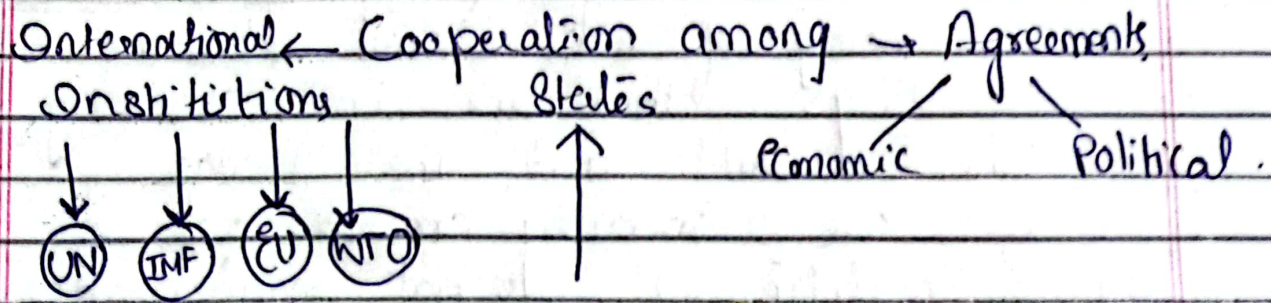 International ← Cooperation among → Agreements
Institutions States
economic Political.
UN IMF EU WTO